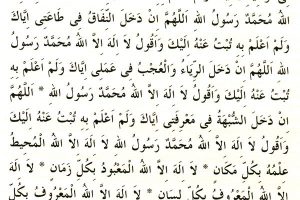 الله مُحَمَّدٌ رَسُولُ الله اَللّٰهُمَّ اِنْ دَخَلَ النِّفَاقُ فِى طَاعَتِى اِيَّاكَ
وَلَمْ اَعْلَمْ بِهِ تُبْتُ عَنْهُ اِلَيْكَ وَاَقُولُ لَا اِلَهَ اِلَّا اللهُ مُحَمَّدٌ رَسُولُ
الله اَللّٰهُمَّ اِنْ دَخَلَ الرِّيَاءُ وَالْعُجْبُ فِى عَمَلِى اِيَّاكَ وَلَمْ اَعْلَمْ بِهِ
تُبْتُ عَنْهُ اِلَيْكَ وَاَقُولُ لَا اِلَهَ اِلَّا اللهُ مُحَمَّدٌ رَسُولُ الله * اَللّٰهُمَّ
اِنْ دَخَلَ الشُّبْهَةُ فِى مَعْرِفَتِى اِيَّاكَ وَلَمْ اَعْلَمْ بِهِ تُبْتُ عَنْهُ اِلَيْكَ
وَاَقُولُ لَا اِلَهَ اِلَّا اللهُ مُحَمَّدٌ رَسُولُ الله لَا اِلَهَ اِلَّا اللهُ الْمُحِيطُ
عِلْمُهُ بِكُلِّ مَكَانٍ * لَا اِلَهَ اِلَّا اللهُ الْمَعْبُودُ بِكُلِّ زَمَانٍ * لَا اِلَهَ
اِلَّا اللهُ الْمَعْرُوفُ بِكُلِّ لِسَانٍ * لَا اِلَهَ اِلَّا اللهُ الْمَعْرُوفُ بِكُلِّ